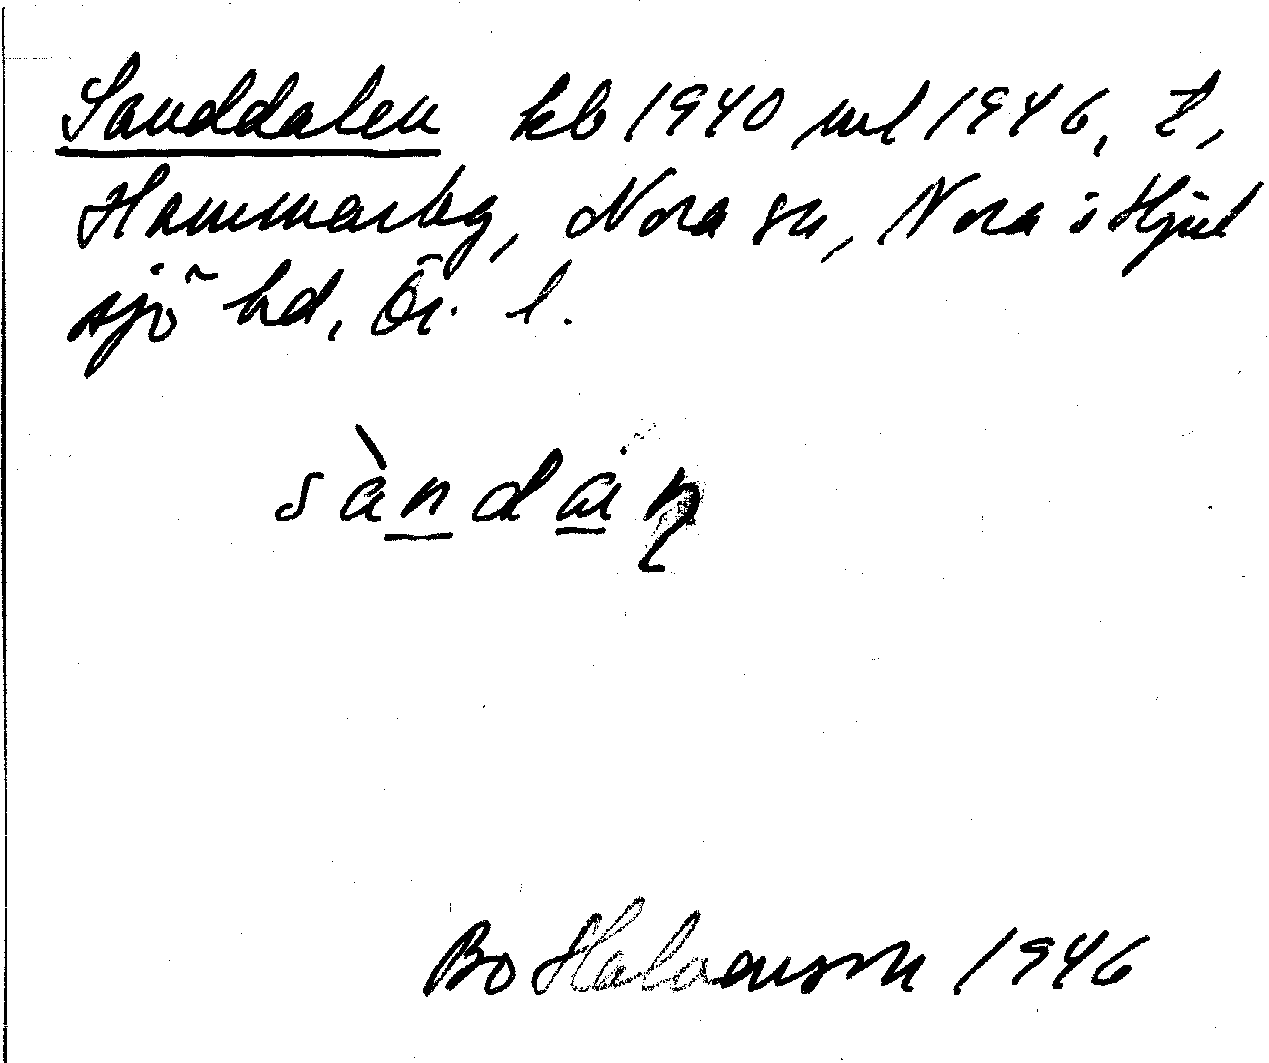 Sanddalen kb 1940 ml 1946, t,
Hammarby, Nora sn, Nora o Hjul
sjö hd, Ör. l.
sàndaɳ
Bo 1946